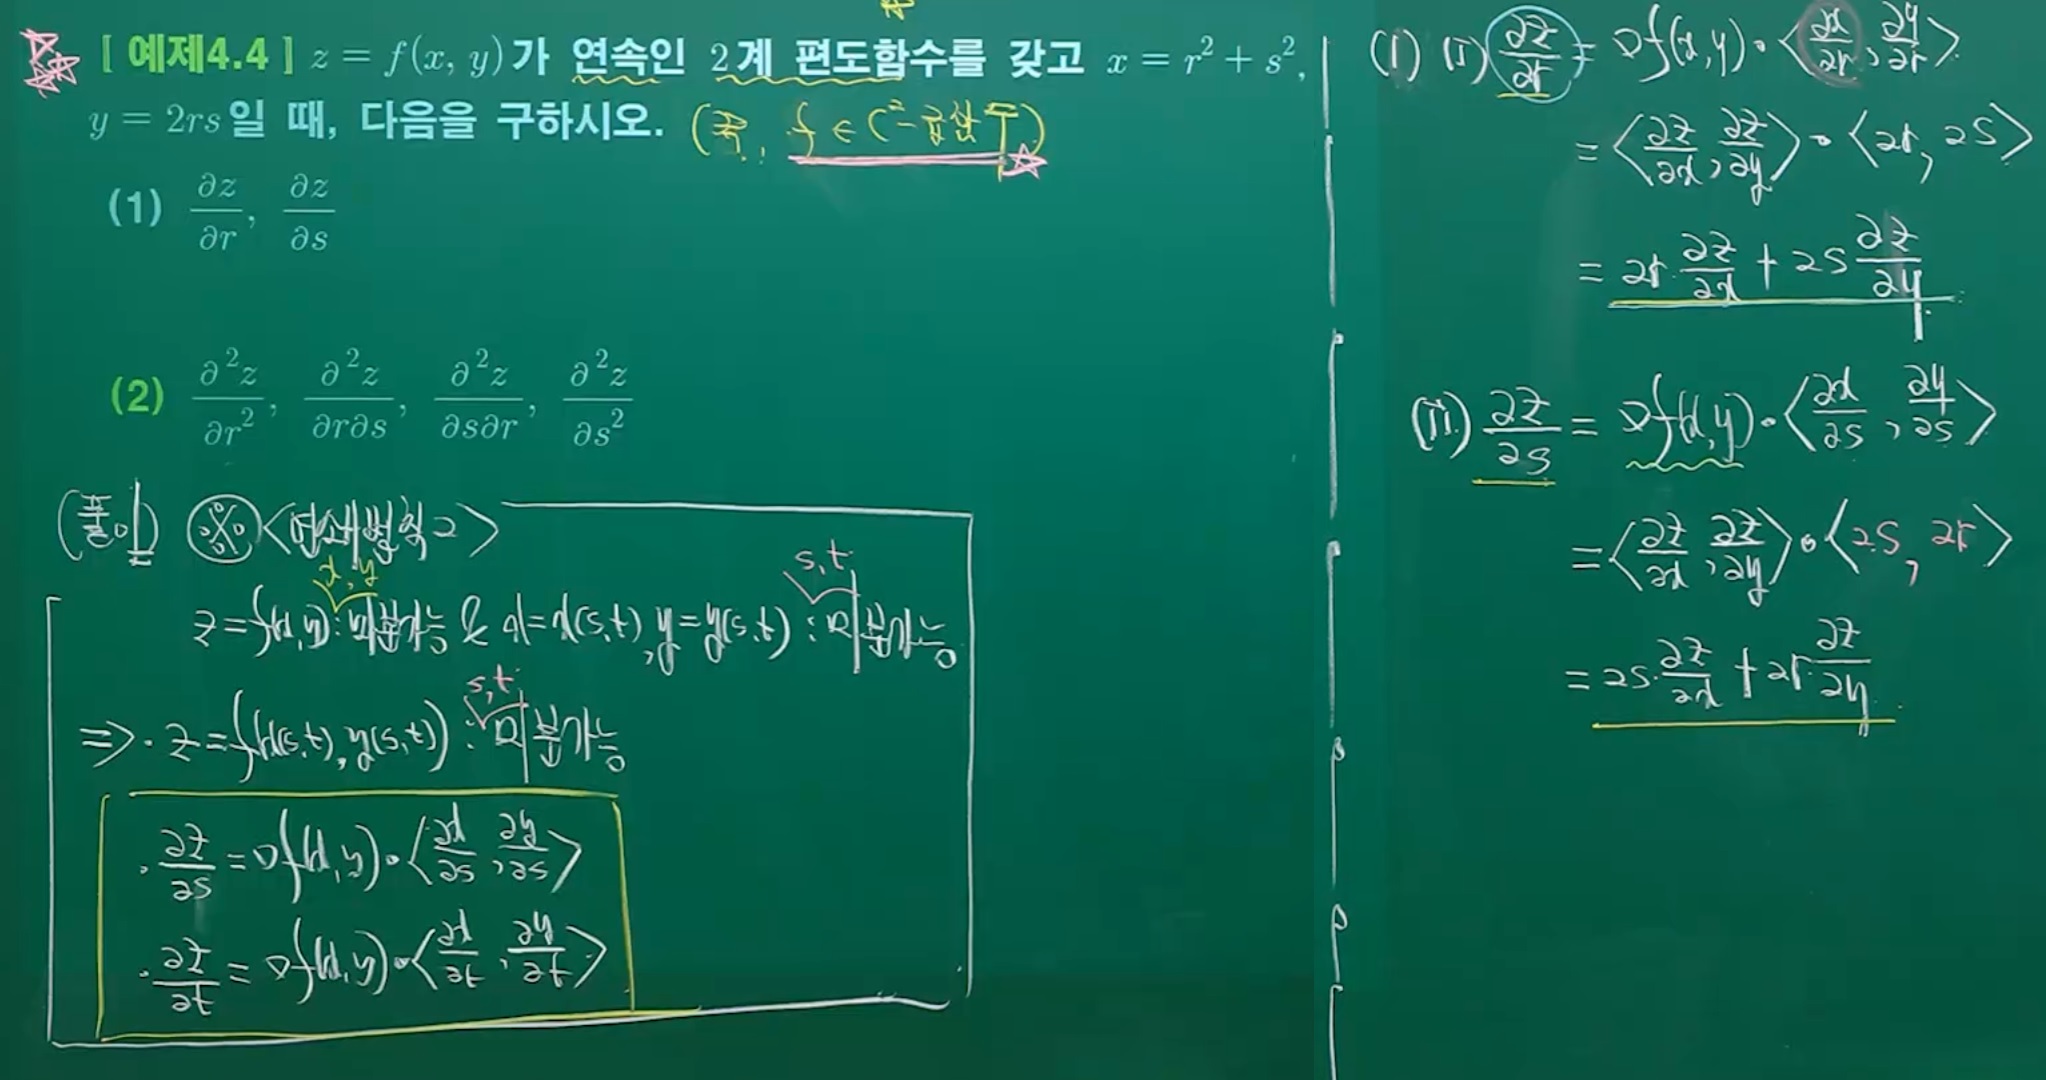 [ 예제4.4 ] z = f(x, y)가 연속인 2계 편도함수를 갖고 x = r² + s²,
y = 2rs일 때, 다음을 구하시오. (즉, f ∈ C²-급함수)
(1) ∂z/∂r, ∂z/∂s
(2) ∂²z/∂r², ∂²z/∂r∂s, ∂²z/∂s∂r, ∂²z/∂s²
(풀이) ※ <연쇄법칙2>
x, y
s, t
z = f(x, y) : 미분가능 & x = x(s, t), y = y(s, t) : 미분가능
s, t
⇒ · z = f(x(s, t), y(s, t)) : 미분가능
· ∂z/∂s = ∇f(x, y) · <∂x/∂s, ∂y/∂s>
· ∂z/∂t = ∇f(x, y) · <∂x/∂t, ∂y/∂t>
(1) (i) ∂z/∂r = ∇f(x, y) · <∂x/∂r, ∂y/∂r>
= <∂z/∂x, ∂z/∂y> · <2r, 2s>
= 2r · ∂z/∂x + 2s ∂z/∂y
(ii) ∂z/∂s = ∇f(x, y) · <∂x/∂s, ∂y/∂s>
= <∂z/∂x, ∂z/∂y> · <2s, 2r>
= 2s · ∂z/∂x + 2r · ∂z/∂y